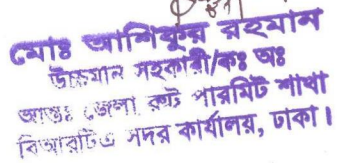 মোঃ আশিকুর রহমান
উচ্চমান সহকারী/কঃ অঃ
আন্তঃ জেলা রুট পারমিট শাখা
বিআরটিএ সদর কার্যালয়, ঢাকা।